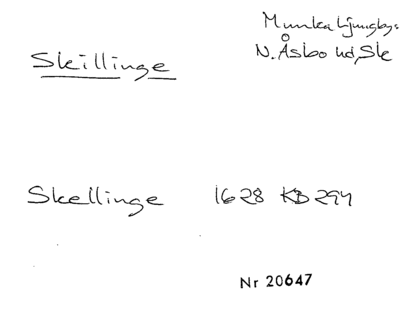 Skillinge
Munka Ljungby s
N. Åsbo hd, Sk
Skellinge 1628 KB 294
Nr 20647